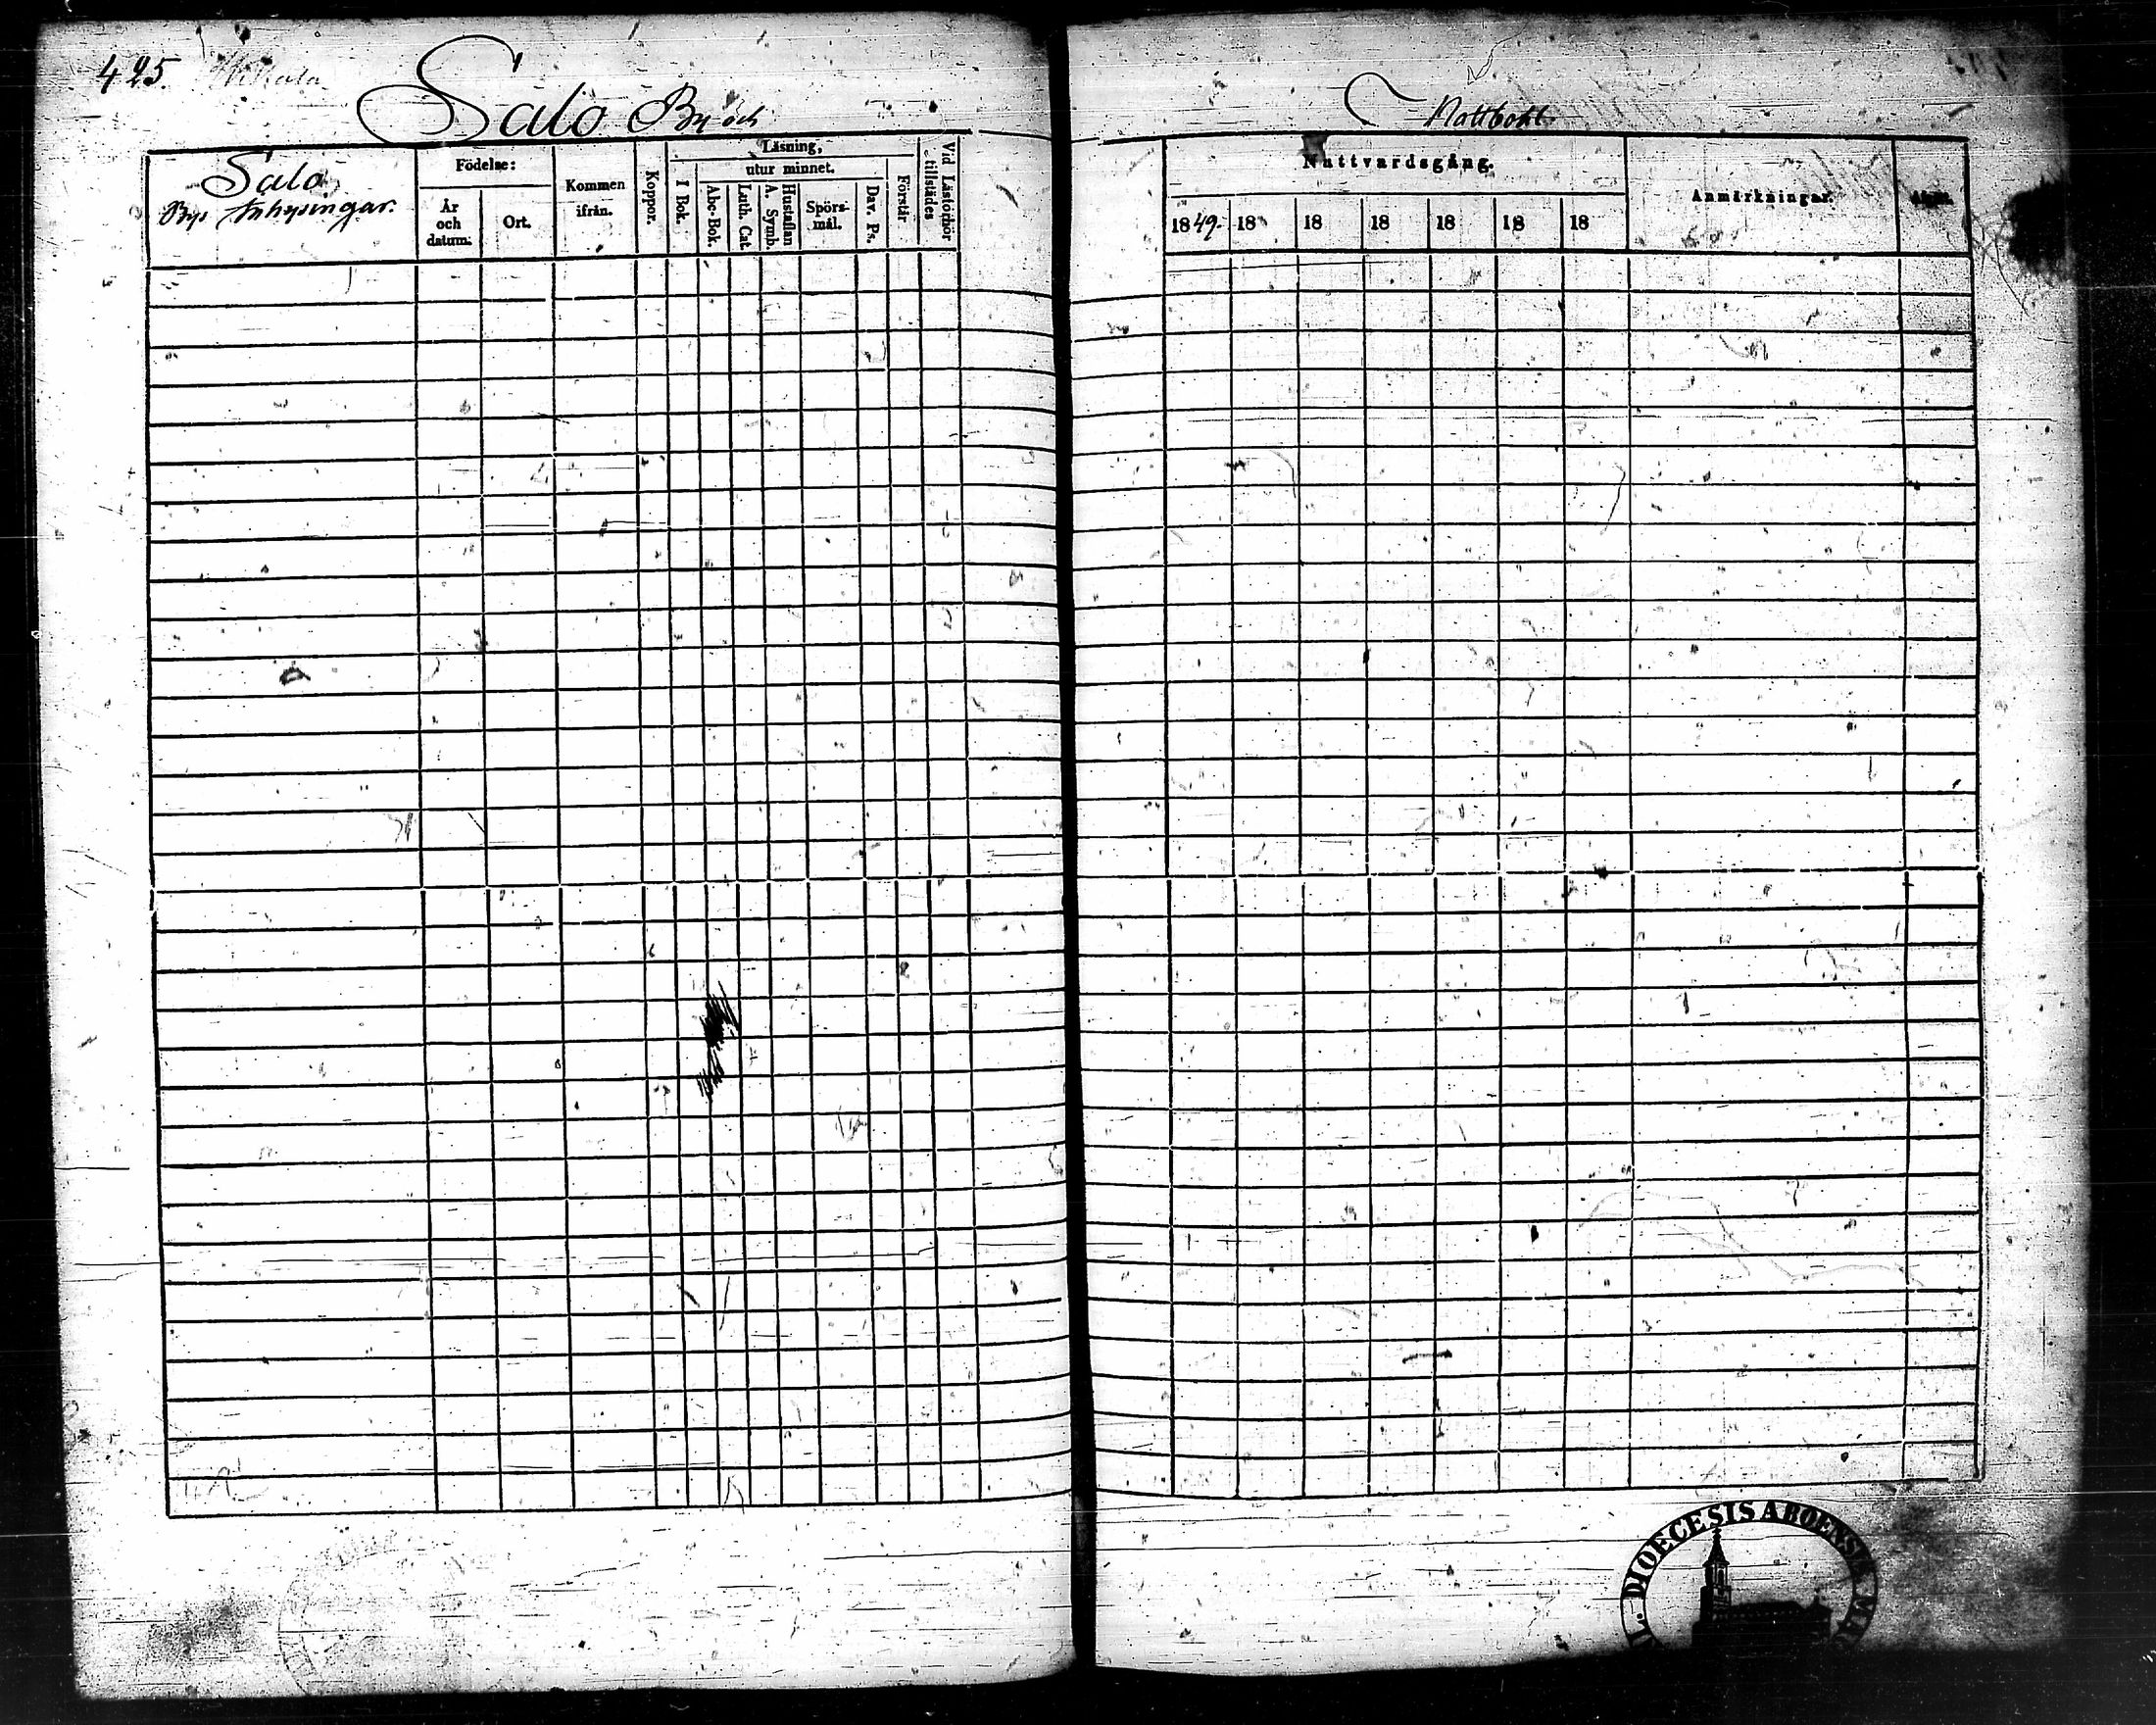 425.
Salo By och
Rottbohl
Salo
Bys Inhysingar.
Födelse:
År och datum.
Ort.
Kommen ifrån.
Koppor.
Läsning,
utur minnet.
I Bok.
Abc-Bok.
Luth. Cat.
A. Symb.
Hustaflan
Spörs-
mål.
Dav. Ps.
Förstår
Vid Läsförhör
tillstädes
Nattvardsgång.
1849. 18 18 18 18 18 18
Anmärkningar.
DIOECESIS ABOENSIS